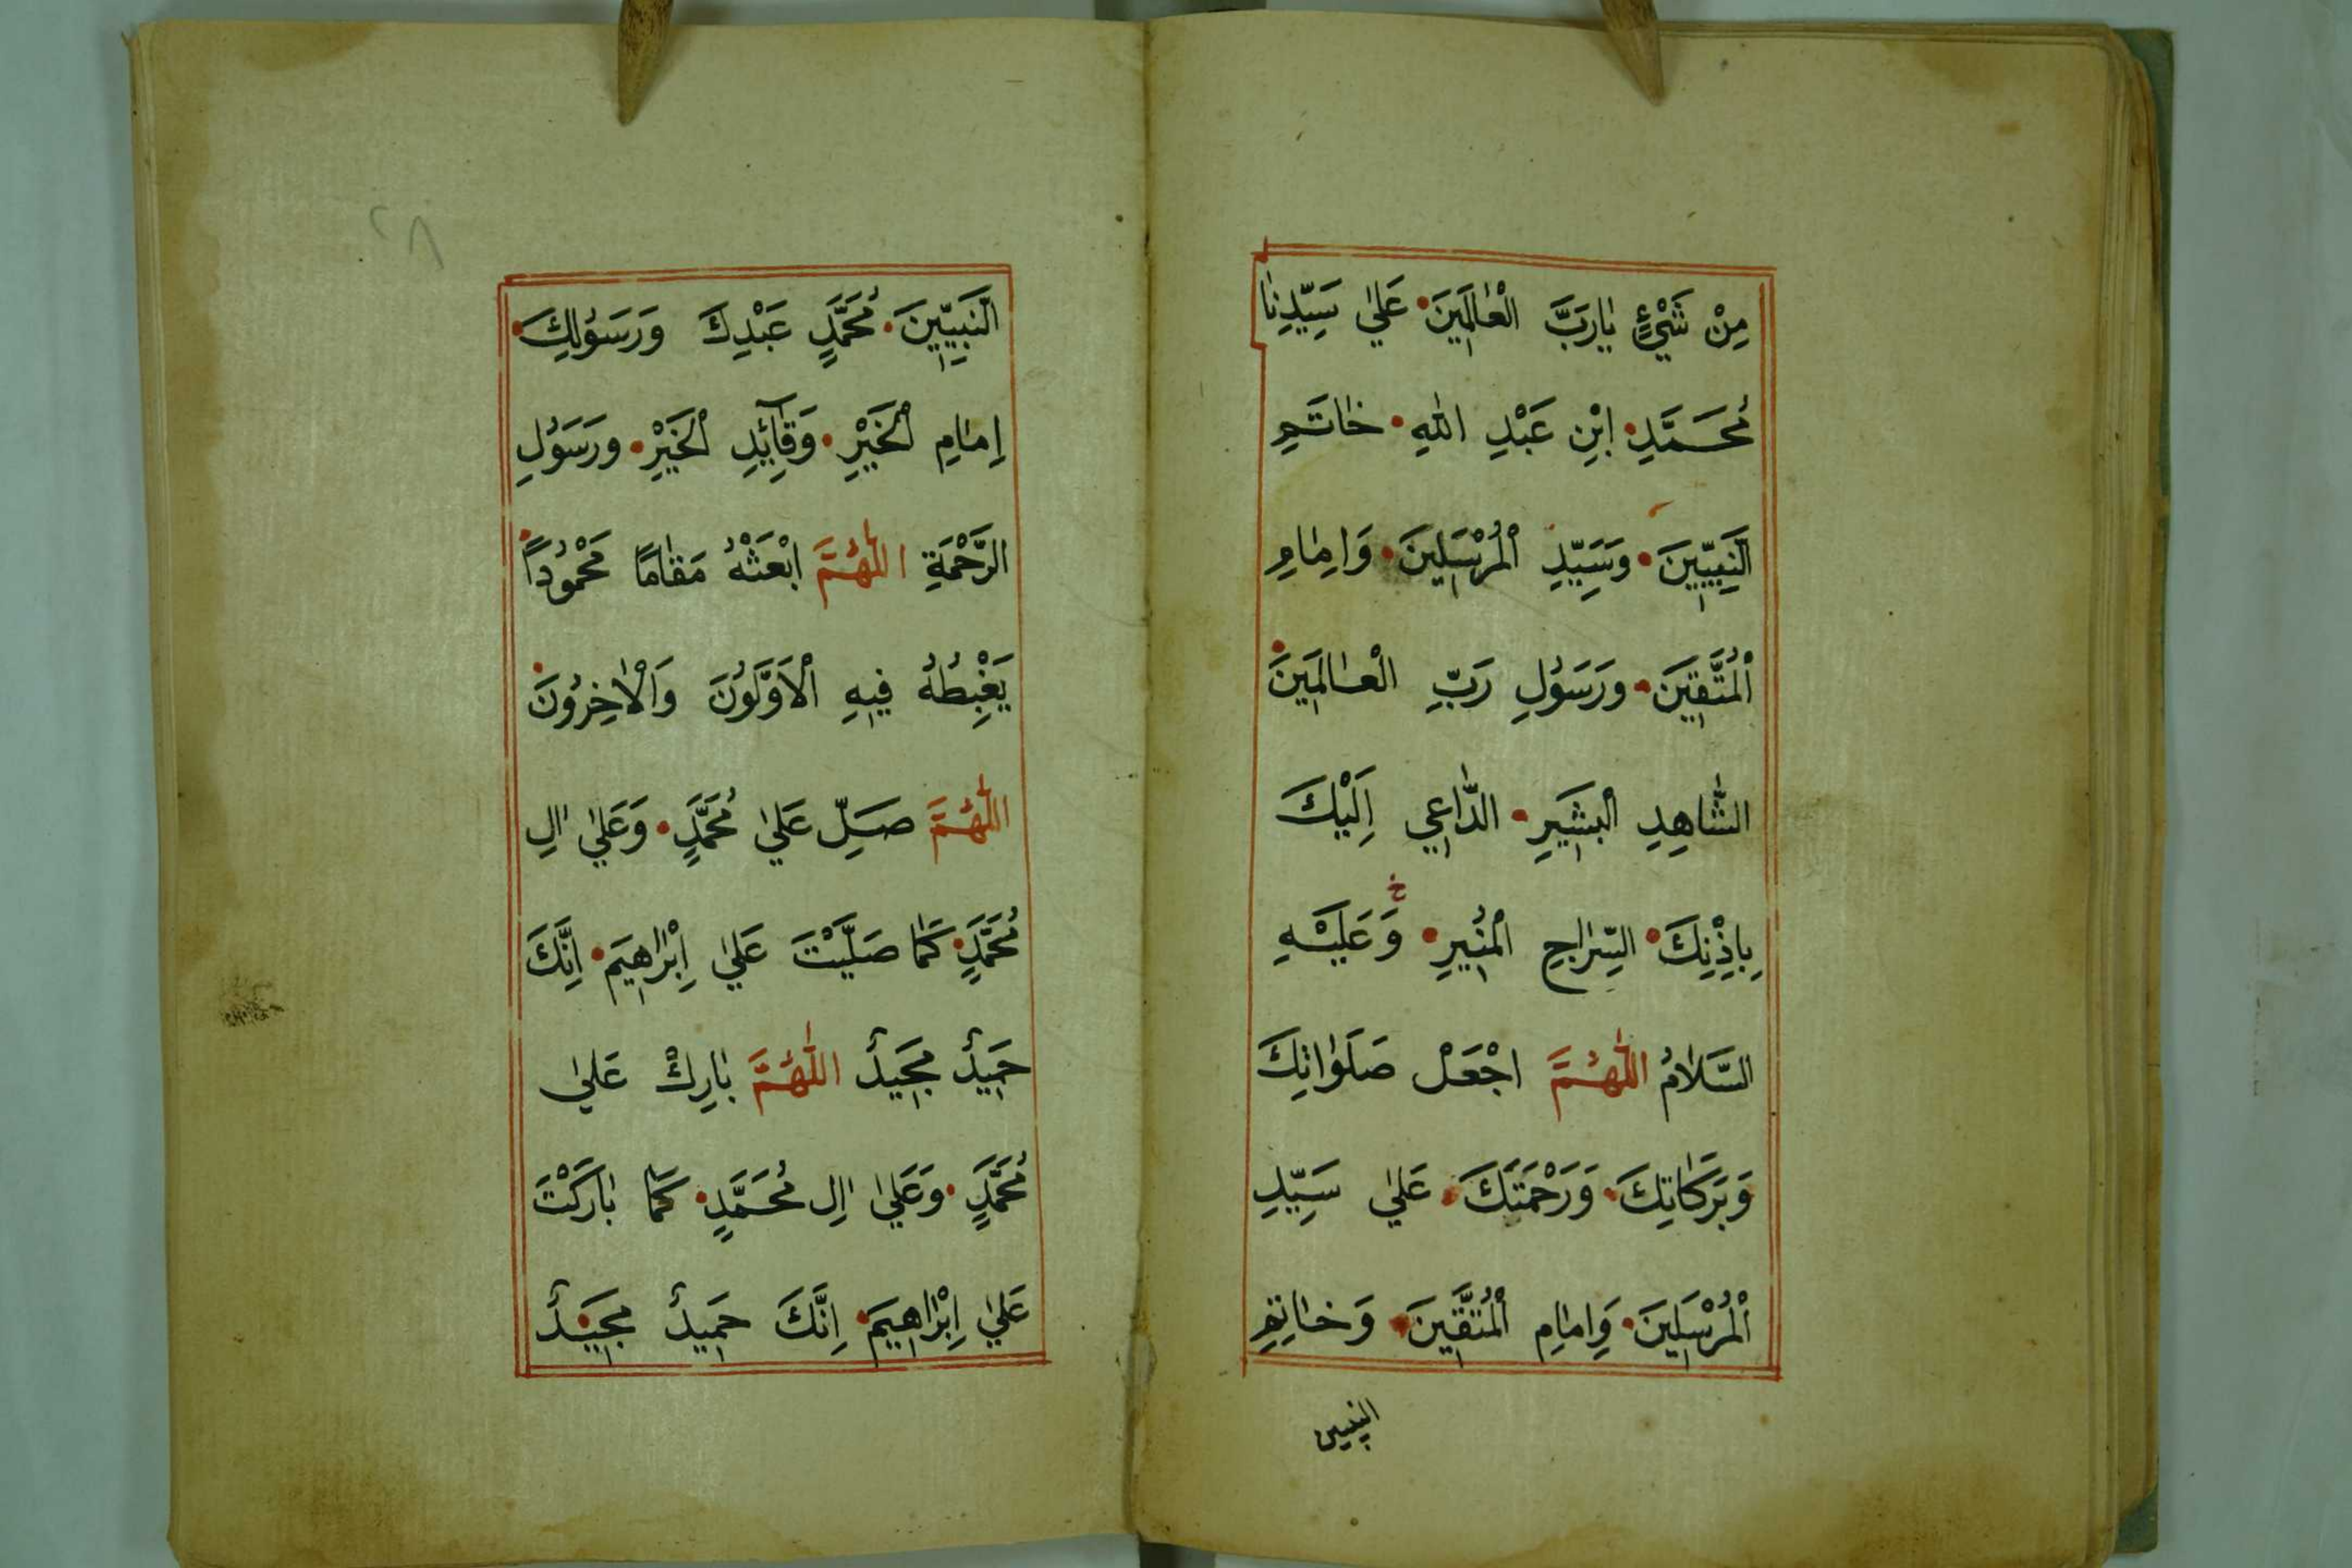 مِنْ شَيْءٍ يَارَبَّ الْعَالَمِينَ۰ عَلَى سَيِّدِنَا
مُحَمَّدِ۰ ابْنِ عَبْدِ اللهِ۰ خَاتَمِ
النَّبِيِّينَ۰ وَسَيِّدِ الْمُرْسَلِينَ۰ وَاِمَامِ
الْمُتَّقِينَ۰ وَرَسُولِ رَبِّ الْعَالَمِينَ۰
الشَّاهِدِ الْبَشِيرِ۰ الدَّاعِي اِلَيْكَ
بِاِذْنِكَ۰ السِّرَاجِ الْمُنِيرِ۰ وَعَلَيْهِ
خ
السَّلَامُ اللّٰهُمَّ اجْعَلْ صَلَوَاتِكَ
وَبَرَكَاتِكَ۰ وَرَحْمَتَكَ۰ عَلَى سَيِّدِ
الْمُرْسَلِينَ۰ وَاِمَامِ الْمُتَّقِينَ۰ وَخَاتِمِ
النبيين
٢٨
النَّبِيِّينَ۰ مُحَمَّدٍ عَبْدِكَ وَرَسُولِكَ۰
اِمَامِ الْخَيْرِ۰ وَقَائِدِ الْخَيْرِ۰ وَرَسُولِ
الرَّحْمَةِ اللّٰهُمَّ ابْعَثْهُ مَقَامًا مَحْمُودًا۰
يَغْبِطُهُ فِيهِ الْاَوَّلُونَ وَالْاٰخِرُونَ۰
اللّٰهُمَّ صَلِّ عَلَى مُحَمَّدٍ۰ وَعَلَى اٰلِ
مُحَمَّدٍ۰ كَمَا صَلَّيْتَ عَلَى اِبْرَاهِيمَ۰ اِنَّكَ
حَمِيدٌ مَجِيدٌ اللّٰهُمَّ بَارِكْ عَلَى
مُحَمَّدٍ۰ وَعَلَى اٰلِ مُحَمَّدٍ۰ كَمَا بَارَكْتَ
عَلَى اِبْرَاهِيمَ۰ اِنَّكَ حَمِيدٌ مَجِيدٌ